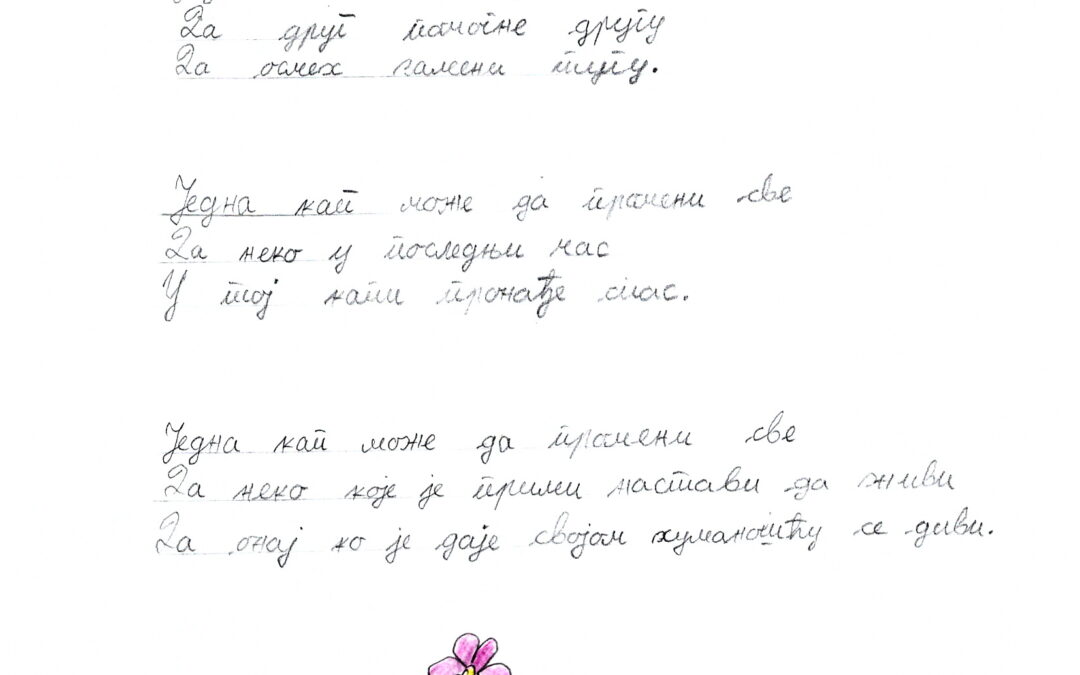 Да друг помогне другу
Да осмех замени тугу.
Једна кап може да промени све
Да неко у последњи час
У тој капи пронађе спас.
Једна кап може да промени све
Да неко које је прими настави да живи
Да онај ко је даје својом хуманошћу се диви.